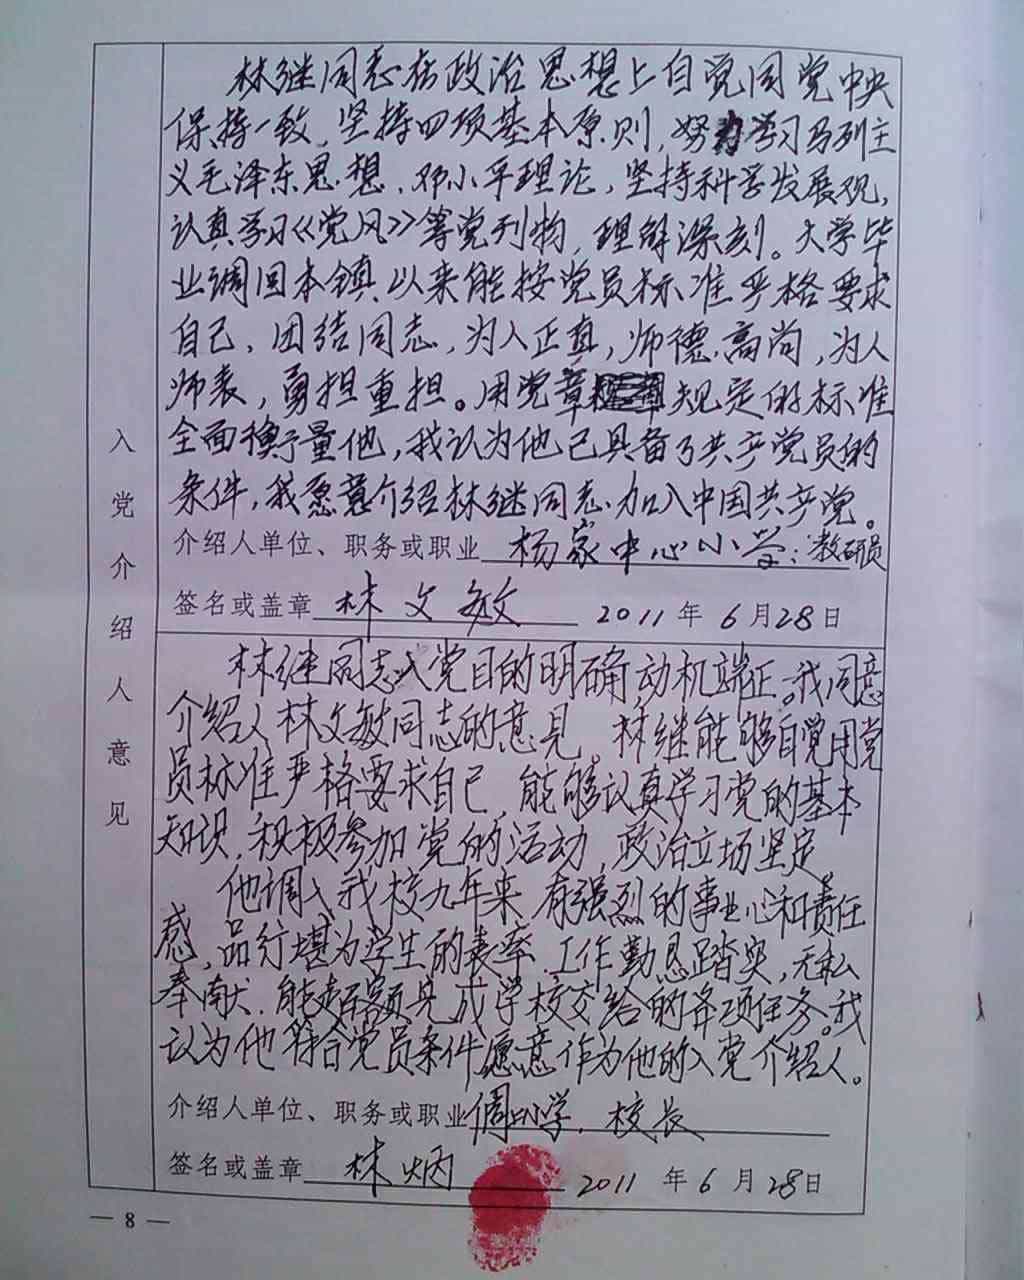 入党介绍人意见
林继同志在政治思想上自觉同党中央
保持一致，坚持四项基本原则，努力学习马列主
义毛泽东思想、邓小平理论，坚持科学发展观，
认真学习《党风》等党刊物，理解深刻。大学毕
业调回本镇以来能按党员标准严格要求
自己，团结同志，为人正真，师德高尚，为人
师表，勇担重担。用党章规定的标准
全面衡量他，我认为他已具备了共产党员的
条件，我愿意介绍林继同志加入中国共产党。
介绍人单位、职务或职业 杨家中心小学：教研员
签名或盖章 林文敏 2011 年 6 月 28 日
林继同志入党目的明确，动机端正。我同意
介绍人林文敏同志的意见。林继能够自觉用党
员标准严格要求自己，能够认真学习党的基本
知识，积极参加党的活动，政治立场坚定。
他调入我校九年来，有强烈的事业心和责任
感，品行堪为学生的表率，工作勤恳踏实，无私
奉献，能超额完成学校交给的各项任务。我
认为他符合党员条件，愿意作为他的入党介绍人。
介绍人单位、职务或职业 小学，校长
签名或盖章 林炳 2011 年 6 月 28 日
— 8 —